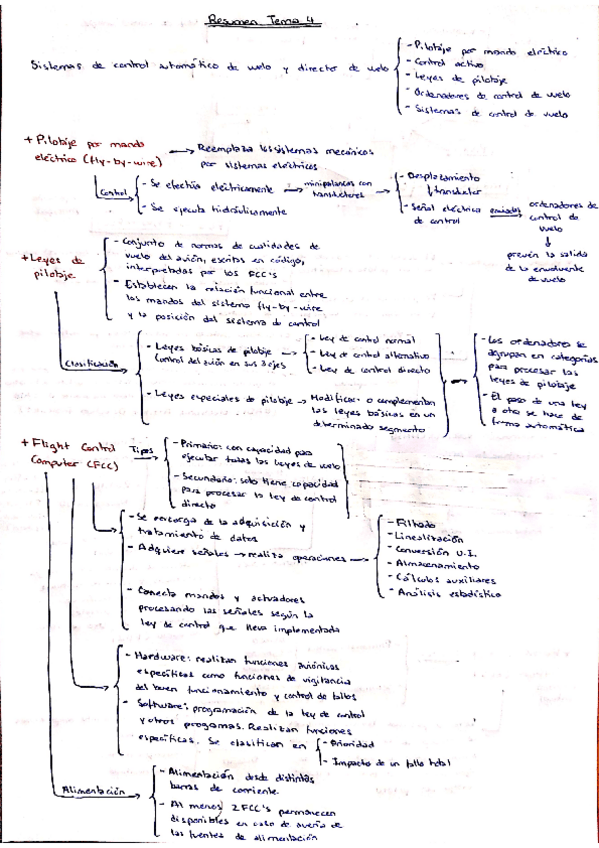 Resumen Tema 4
Sistemas de control automático de vuelo y director de vuelo
- Pilotaje por mando eléctrico
- Control activo
- Leyes de pilotaje
- Ordenadores de control de vuelo
- Sistemas de control de vuelo
+ Pilotaje por mando
eléctrico (fly-by-wire)
Reemplaza los sistemas mecánicos
por sistemas eléctricos
Control
- Se efectúa eléctricamente
- Se ejecuta hidráulicamente
minipalancas con
transductores
- Desplazamiento
transductor
- Señal eléctrica
de control
enviados
ordenadores de
control de
vuelo
prevén la salida
de la envolvente
de vuelo
+ Leyes de
pilotaje
- Conjunto de normas de cualidades de
vuelo del avión, escritas en código,
interpretadas por los FCC's
- Establecen la relación funcional entre
los mandos del sistema fly-by-wire
y la posición del sistema de control
Clasificación
- Leyes básicas de pilotaje
Control del avión en sus 3 ejes
- Ley de control normal
- Ley de control alternativo
- Ley de control directo
- Leyes especiales de pilotaje
Modifican o complementan
las leyes básicas en un
determinado segmento
- Los ordenadores se
agrupan en categorías
para procesar las
leyes de pilotaje
- El paso de una ley
a otra se hace de
forma automática
+ Flight Control
Computer (FCC)
Tipos
- Primario: con capacidad para
ejecutar todas las leyes de vuelo
- Secundario: solo tiene capacidad
para procesar la ley de control
directo
- Se encarga de la adquisición y
tratamiento de datos
- Adquiere señales → realiza operaciones
- Filtrado
- Linealización
- Conversión U.I.
- Almacenamiento
- Cálculos auxiliares
- Análisis estadístico
- Conecta mandos y actuadores
procesando las señales según la
ley de control que lleva implementada
- Hardware: realizan funciones aviónicas
específicas como funciones de vigilancia
del buen funcionamiento y control de fallos
- Software: programación de la ley de control
y otros programas. Realizan funciones
específicas. Se clasifican en
- Prioridad
- Impacto de un fallo total
Alimentación
- Alimentación desde distintas
barras de corriente.
- Al menos 2 FCC's permanecen
disponibles en caso de avería de
las fuentes de alimentación